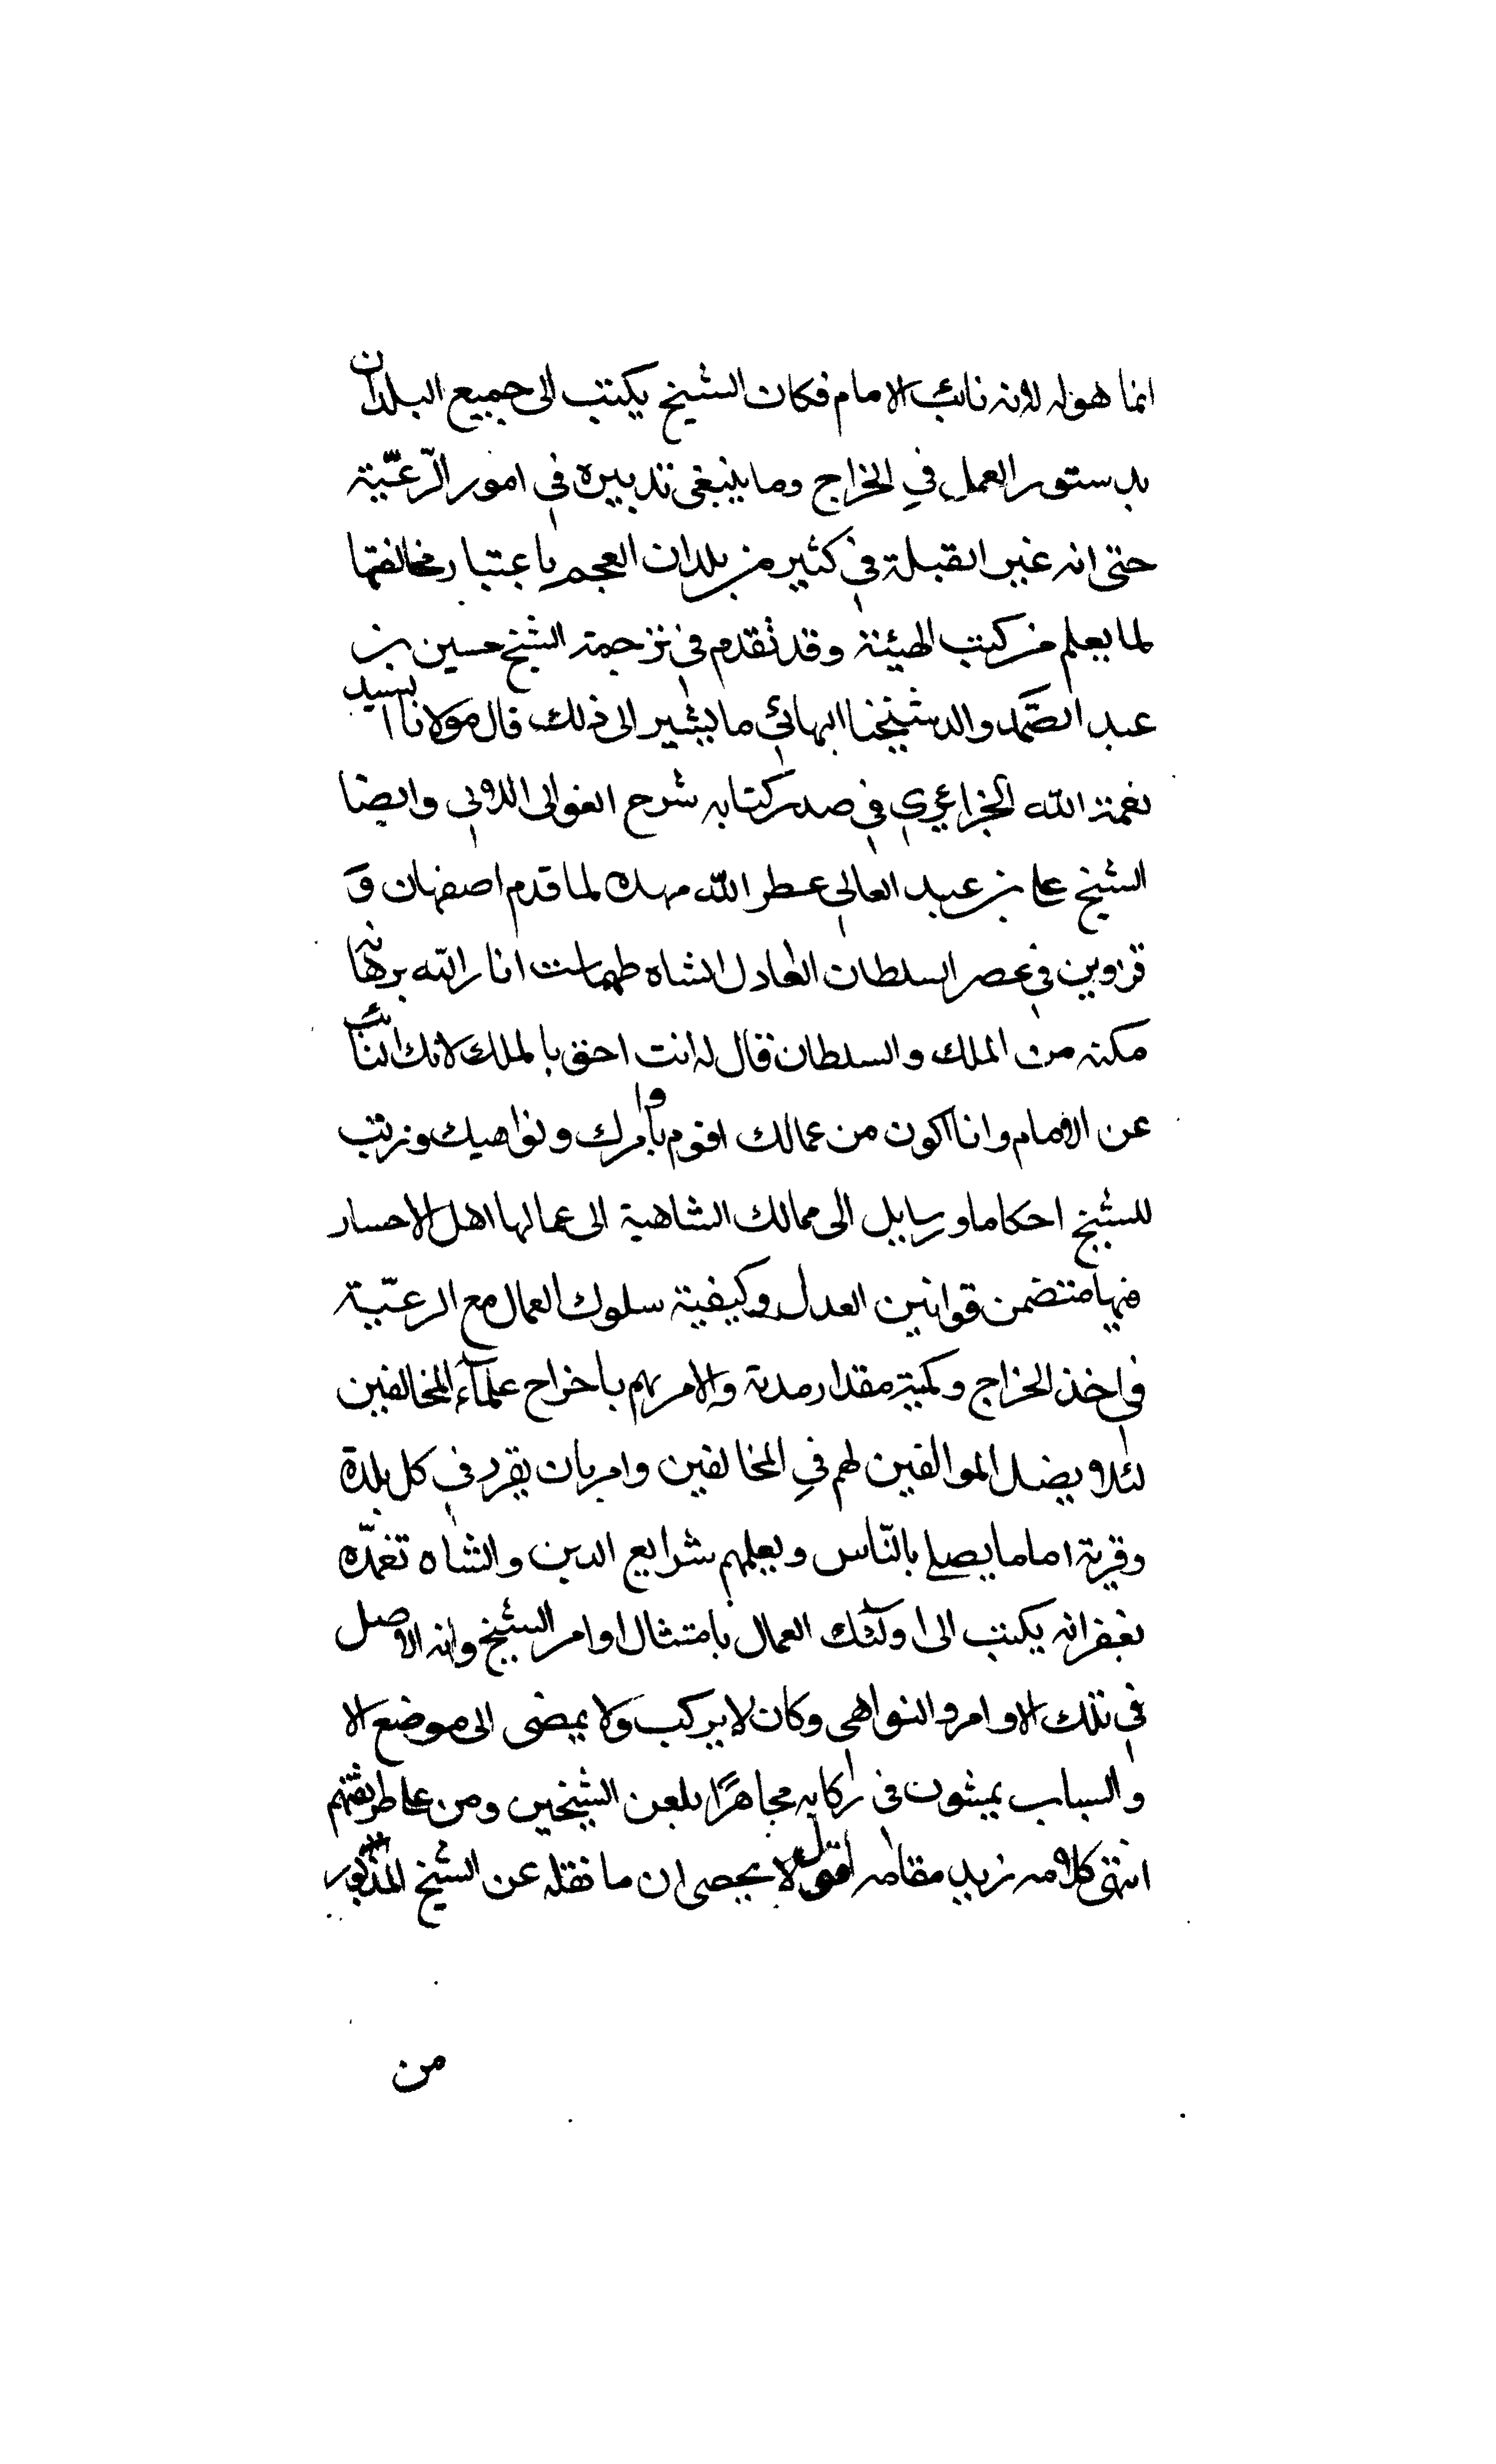 انما هو له لانه نائب الامام فكان الشيخ يكتب الى جميع البلدان
بدستور العمل في الخراج وما ينبغى تدبيره في امور الرّعيّة
حتى انه غير القبلة في كثير من بلدان العجم باعتبار مخالفتها
لما يعلم من كتب الهيئة وقد تقدم في ترجمة الشيخ حسين بن
عبد الصَّمد والد شيخنا البهائي ما يشير الى ذلك قال مولانا السيد
نعمة الله الجزائري في صدر كتابه شرح الغوالى اللالي وايضا
الشيخ على بن عبد العالي عطر الله مهده لما قدم اصفهان وَ
قزوين في عصر السلطان العادل الشاه طهماست انار الله برهانه
مكنه من الملك والسلطان قال له انت احق بالملك لانك النائب
عن الامام وانا اكون من عمالك اقوم باوامرك ونواهيك ونرتب
للشيخ احكاما ورسايل الى ممالك الشاهية الى عمالها اهل الاحسار
فيها متتضمن قوانين العدل وكيفية سلوك العمال مع الرعيّة
في اخذ الخراج وكمية مقدار مدته والامر بهم باخراج علمآء المخالفين
لئلا يضل الموالفين لهم في المخالفين وامر بان يقرر في كل بلدة
وقرية اماما يصلي بالنّاس ويعلمهم شرايع الدين والشاه تغمّده
بغفرانه يكتب الى اولئك العمال بامتثال اوامر الشيخ وانه الاصل
في تلك الاوامر والنواهى وكان لا يركب ولا يمضى الى موضع الا
والسباب يمشون في ركابه مجاهرًا بلعن الشيخين ومن على طريقتهم
انتهى كلامه زيد مقامه اقول لا يحصى ان ما نقله عن الشيخ المذكور
من